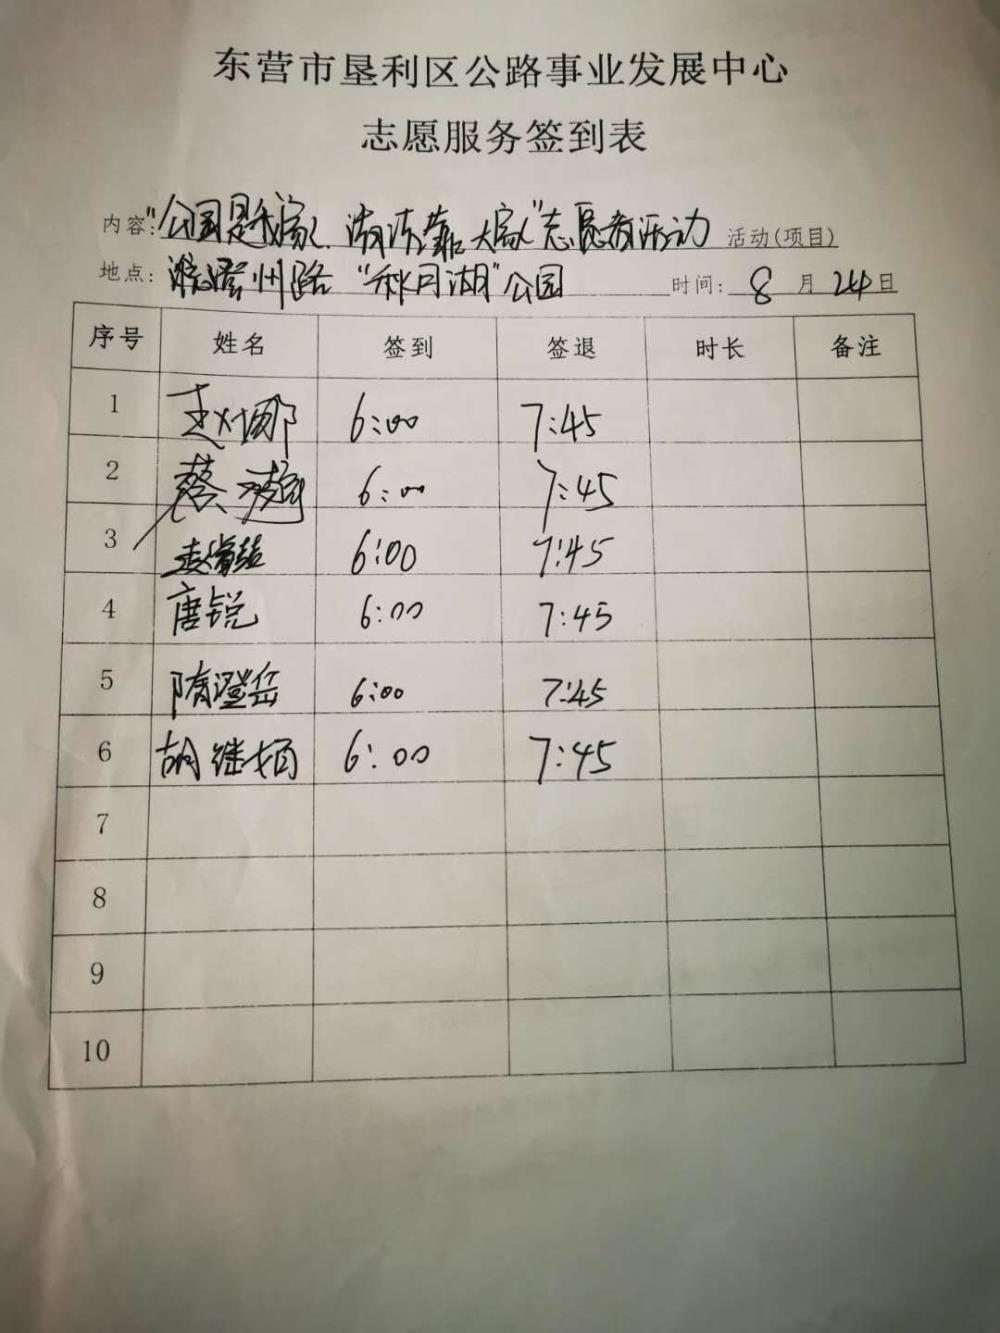 东营市垦利区公路事业发展中心
志愿服务签到表
内容:"公园是我家 清洁靠大家"志愿者活动 活动(项目)
地点: 州路 "秋月湖"公园 时间: 8 月 24 日
序号 姓名 签到 签退 时长 备注
1 赵娜 6:00 7:45
2 蔡 6:00 7:45
3 6:00 7:45
4 唐锐 6:00 7:45
5 隋澄岳 6:00 7:45
6 胡继 6:00 7:45
7
8
9
10